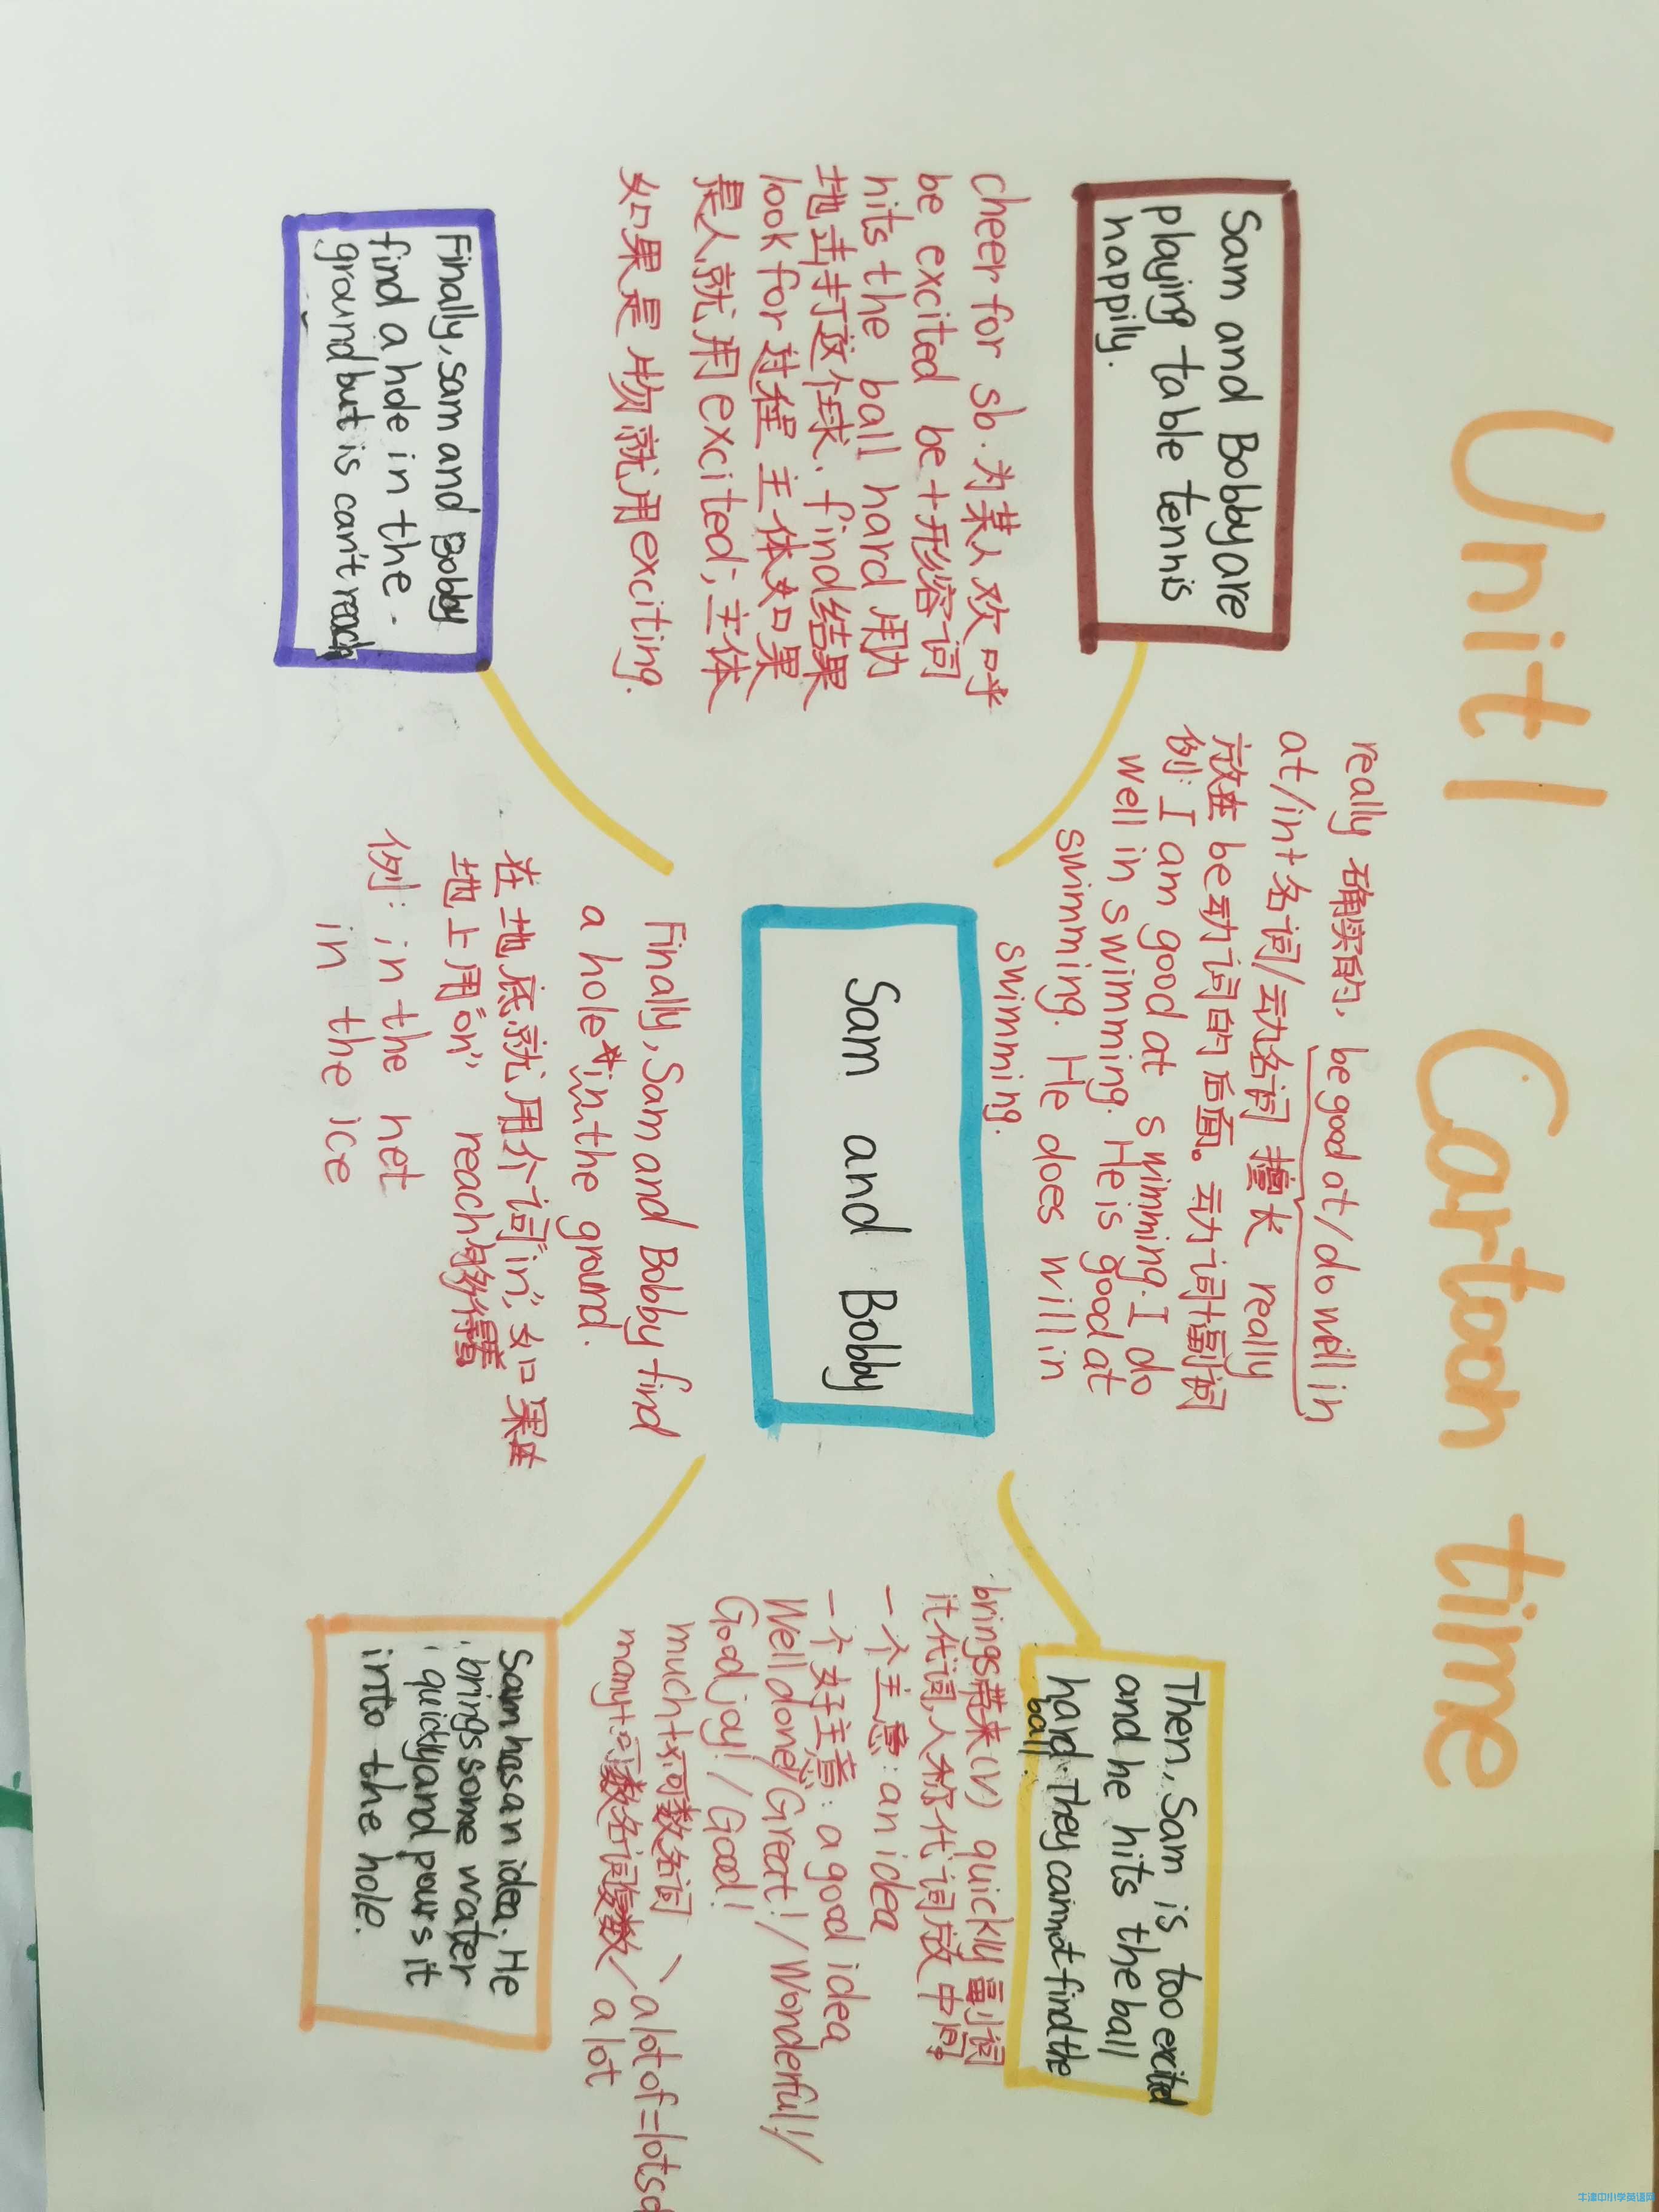 Unit 1 Cartoon time
Sam and Bobby are
playing table tennis
happily.
cheer for sb. 为某人欢呼
be excited be+形容词
hits the ball hard 用力
地击打这个球. find结果
look for 过程 主体如果
是人就用excited; 主体
如果是物就用exciting.
really 确实的, be good at/do well in
at/in+名词/动名词 擅长 really
放在 be动词的后面。动词+副词
例: I am good at swimming. I do
well in swimming. He is good at
swimming. He does will in
swimming.
Then, Sam is too excited
and he hits the ball
hard. They cannot find the
ball.
brings带来(v) quickly副词
it代词,人称代词放中间。
一个主意: an idea
一个好主意: a good idea
Well done!/Great!/Wonderful!/
God joy!/Good!
much+不可数名词 \ a lot of=lots of
many+可数名词复数 / a lot
Sam and Bobby
Finally, sam and Bobby
find a hole in the
ground but is can't reach
Finally, Sam and Bobby find
a hole in the ground.
在地底就用介词"in", 如果在
地上用"on" reach够得着
例: in the net
in the ice
Sam has an idea. He
brings some water
quickly and pours it
into the hole.
牛津中小学英语网